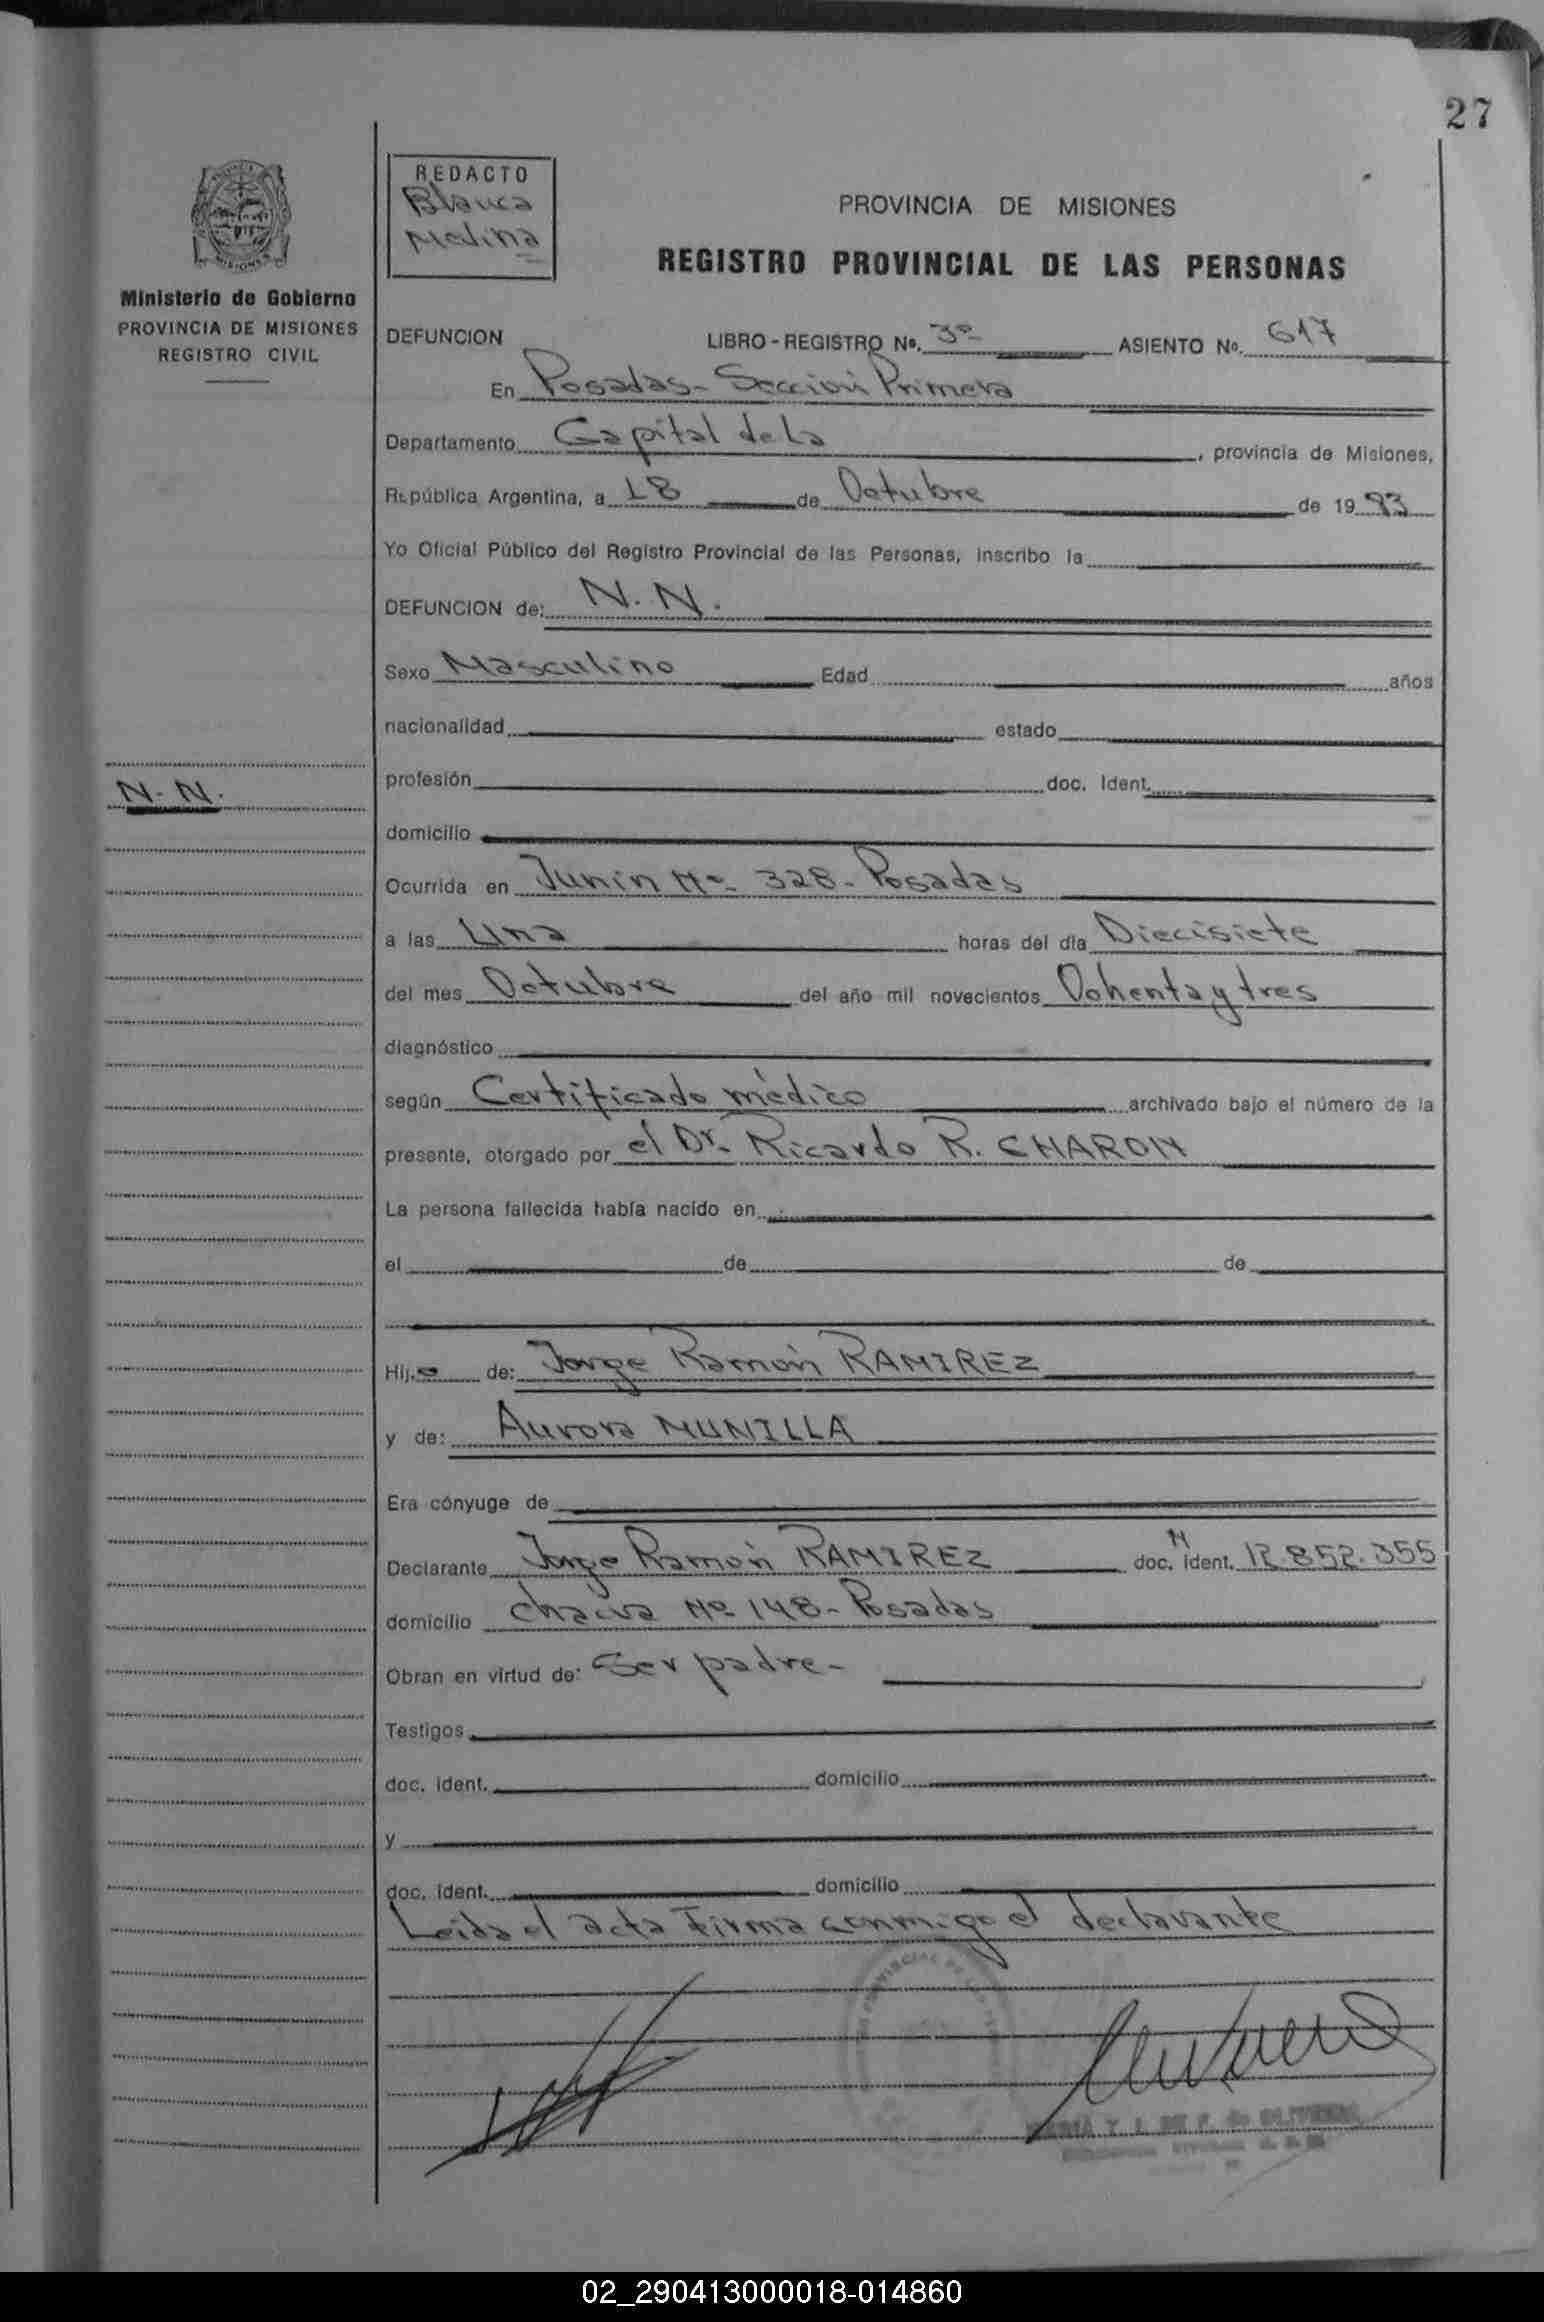 27
REDACTO
Blanca
Molina
Ministerio de Gobierno
PROVINCIA DE MISIONES
REGISTRO CIVIL
PROVINCIA DE MISIONES
REGISTRO PROVINCIAL DE LAS PERSONAS
DEFUNCION LIBRO-REGISTRO Nº. 3º ASIENTO Nº. 617
En Posadas- Sección Primera
Departamento Capital de La, provincia de Misiones,
República Argentina, a 18 de Octubre de 1983
Yo Oficial Público del Registro Provincial de las Personas, inscribo la
DEFUNCION de: N. N.
Sexo Masculino Edad años
nacionalidad estado
N. N.
profesión doc. Ident.
domicilio
Ocurrida en Junín Nº 328- Posadas
a las Una horas del día Diecisiete
del mes Octubre del año mil novecientos Ochenta y tres
diagnóstico
según Certificado médico archivado bajo el número de la
presente, otorgado por el Dr. Ricardo R. CHARON
La persona fallecida había nacido en
el de de
Hijo de: Jorge Ramón RAMIREZ
y de: Aurora MUNILLA
Era cónyuge de
Declarante Jorge Ramón RAMIREZ doc. M ident. 12.852.355
domicilio Nº 148- Posadas
Obran en virtud de: Ser padre-
Testigos
doc. ident. domicilio
y
doc. ident. domicilio
Leída el acta Firma conmigo el declarante
MARIA Y. I. DE F. de OLIVEIRA
02_290413000018-014860